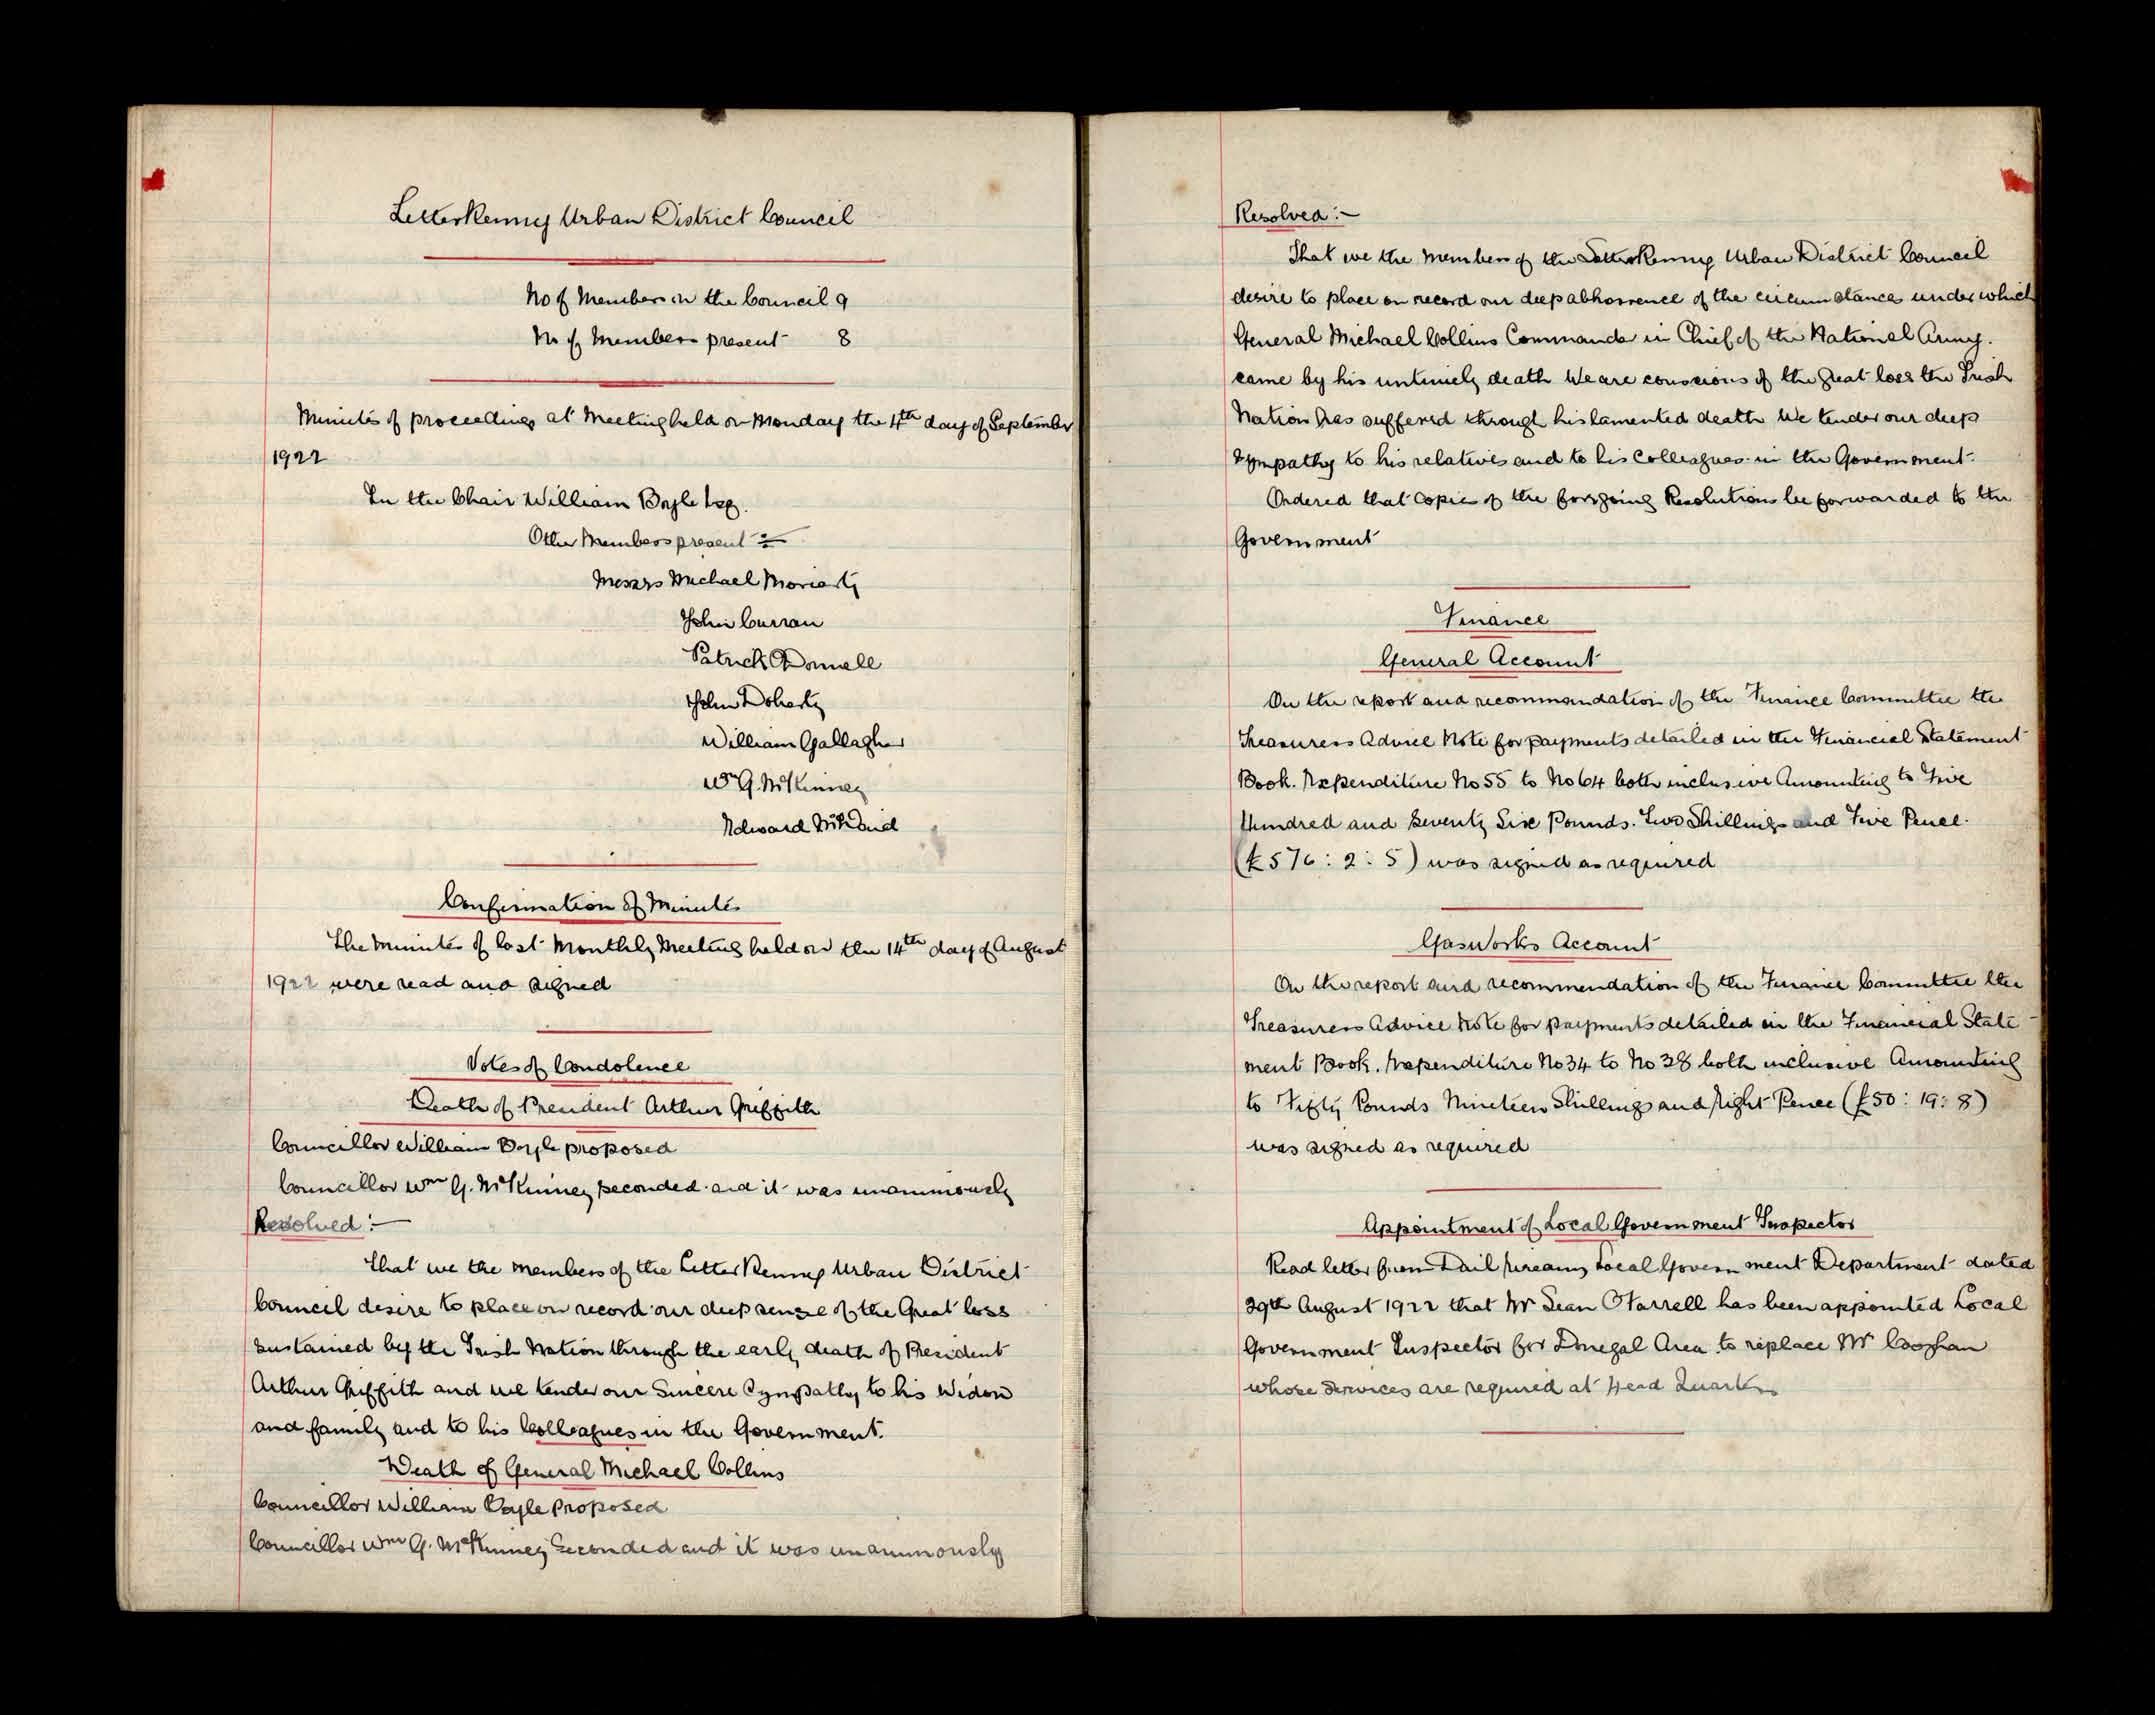 LetterKenny Urban District Council
No of Members in the Council 9
No of Members present 8
Minutes of proceedings at Meeting held on Monday the 4th day of September
1922
In the Chair William Boyle Esq.
Other Members present :-
Messrs Michael Moriarty
John Curran
Patrick O'Donnell
John Doherty
William Gallagher
Wm G. McKinney
Edward McDaid
Confirmation of Minutes
The Minutes of last Monthly Meeting held on the 14th day of August
1922 were read and signed
Votes of Condolence
Death of President Arthur Griffith
Councillor William Boyle proposed
Councillor Wm G. McKinney seconded and it was unanimously
Resolved :-
That we the members of the LetterKenny Urban District
Council desire to place on record our deep sense of the Great loss
sustained by the Irish Nation through the early death of President
Arthur Griffith and we tender our Sincere Sympathy to his Widow
and family and to his Colleagues in the Government.
Death of General Michael Collins
Councillor William Boyle Proposed
Councillor Wm G. McKinney Seconded and it was unanimously
Resolved :-
That we the Members of the LetterKenny Urban District Council
desire to place on record our deep abhorrence of the circumstances under which
General Michael Collins Commander in Chief of the National Army.
came by his untimely death We are conscious of the great loss the Irish
Nation has suffered through his lamented death We tender our deep
sympathy to his relatives and to his Colleagues in the Government.
Ordered that copies of the forgoing Resolutions be forwarded to the
Government
Finance
General Account
On the report and recommendation of the Finance Committee the
Treasurers Advice Note for payments detailed in the Financial Statement
Book. Expenditure No 55 to No 64 both inclusive Amounting to Five
Hundred and Seventy Six Pounds. Two Shillings and Five Pence.
(£576 : 2 : 5) was signed as required
Gasworks Account
On the report and recommendation of the Finance Committee the
Treasurers Advice Note for payments detailed in the Financial State-
ment Book. Expenditure No 34 to No 38 both inclusive Amounting
to Fifty Pounds Nineteen Shillings and Eight Pence (£50 : 19 : 8)
was signed as required
Appointment of Local Government Inspector
Read letter from Dail Eireann Local Government Department dated
29th August 1922 that Mr Sean O'Farrell has been appointed Local
Government Inspector for Donegal Area to replace Mr Coghan
whose services are required at Head Quarters